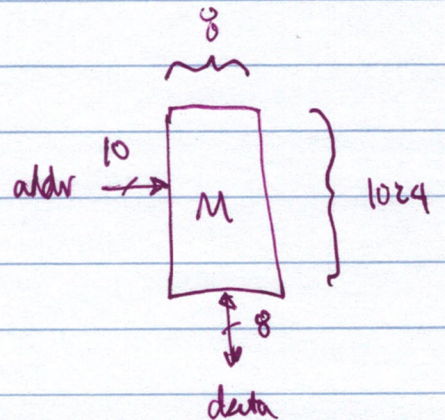 8
10
addr
M
1024
8
data